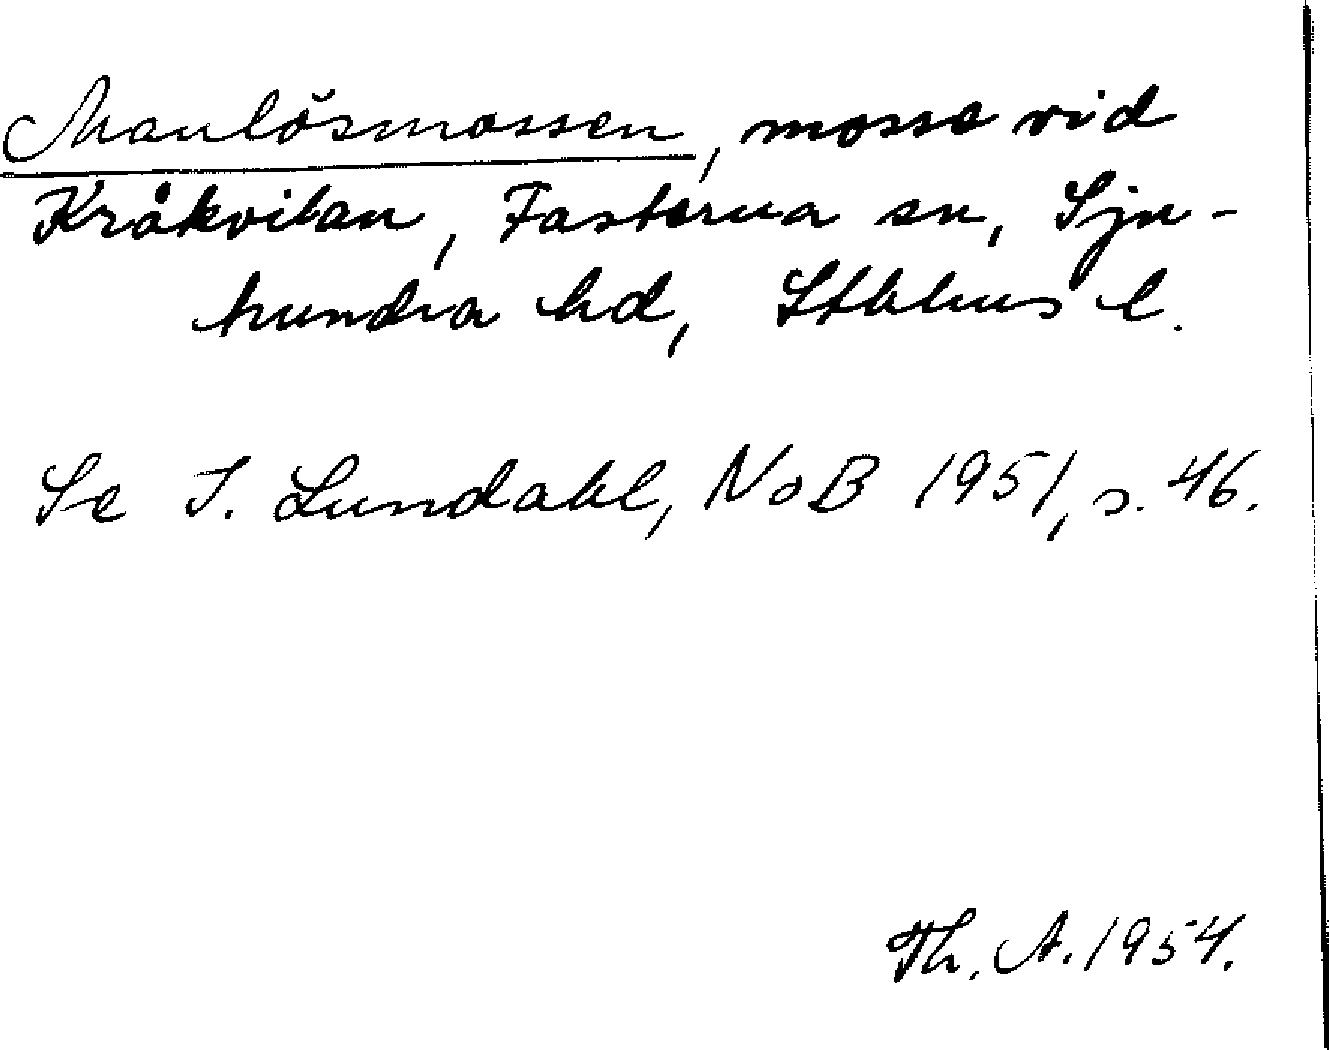 Manlösmossen, mosse vid
Kråkvilan, Fasterna sn, Sju-
hundra hd, Sthlms l.
Se I. Lundahl, NoB 1951, s. 46.
Th. A. 1954.